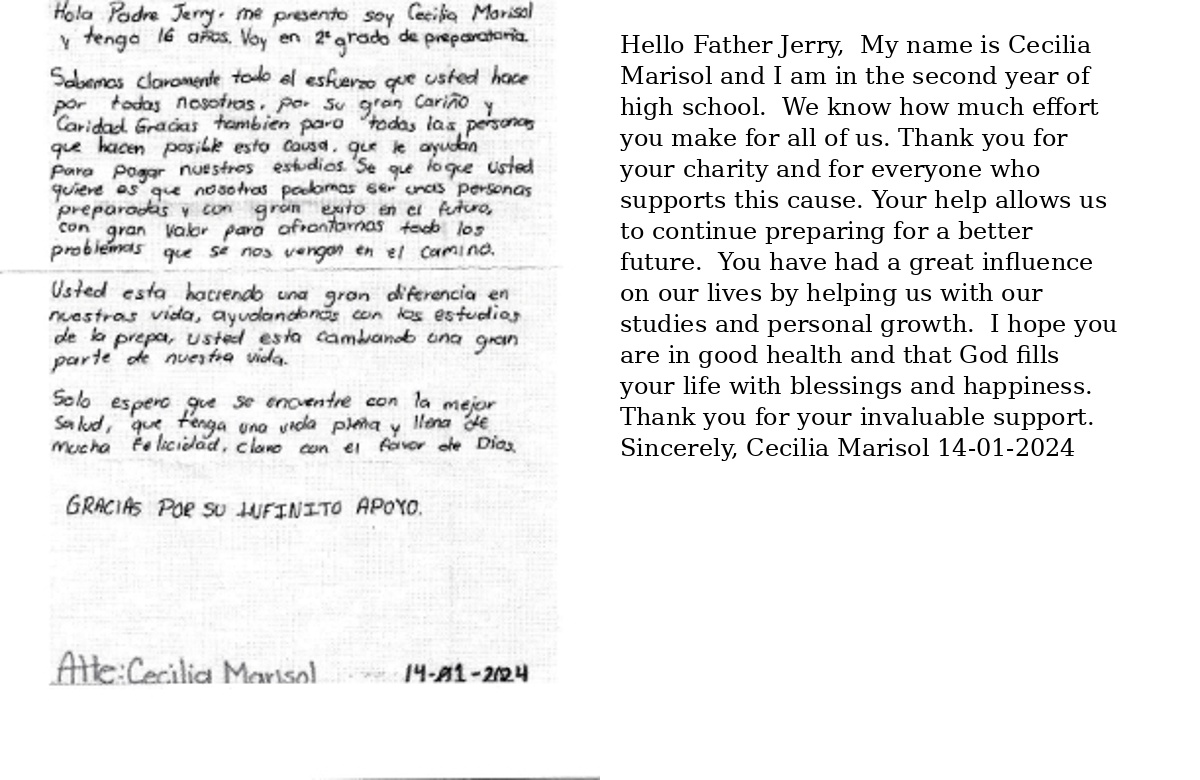 Hola Padre Jerry, me presento soy Cecilia Marisol
y tengo 16 años. Voy en 2º grado de preparatoria.
Sabemos claramente todo el esfuerzo que usted hace
por todas nosotras, por su gran Cariño y
Caridad. Gracias tambien para todas las personas
que hacen posible esta causa, que le ayudan
para pagar nuestros estudios. Se que lo que Usted
quiere es que nosotras podamos ser unas personas
preparadas y con gran exito en el futuro,
con gran valor para afrontarnos todo los
problemas que se nos vengan en el camino.
Usted esta haciendo una gran diferencia en
nuestras vida, ayudandonos con los estudios
de la prepa, Usted esta cambiando una gran
parte de nuestra vida.
Solo espero que se encuentre con la mejor
Salud, que tenga una vida plena y llena de
mucha Felicidad, claro con el favor de Dios.
GRACIAS POR SU INFINITO APOYO.
Atte: Cecilia Marisol 14-01-2024
Hello Father Jerry, My name is Cecilia
Marisol and I am in the second year of
high school. We know how much effort
you make for all of us. Thank you for
your charity and for everyone who
supports this cause. Your help allows us
to continue preparing for a better
future. You have had a great influence
on our lives by helping us with our
studies and personal growth. I hope you
are in good health and that God fills
your life with blessings and happiness.
Thank you for your invaluable support.
Sincerely, Cecilia Marisol 14-01-2024